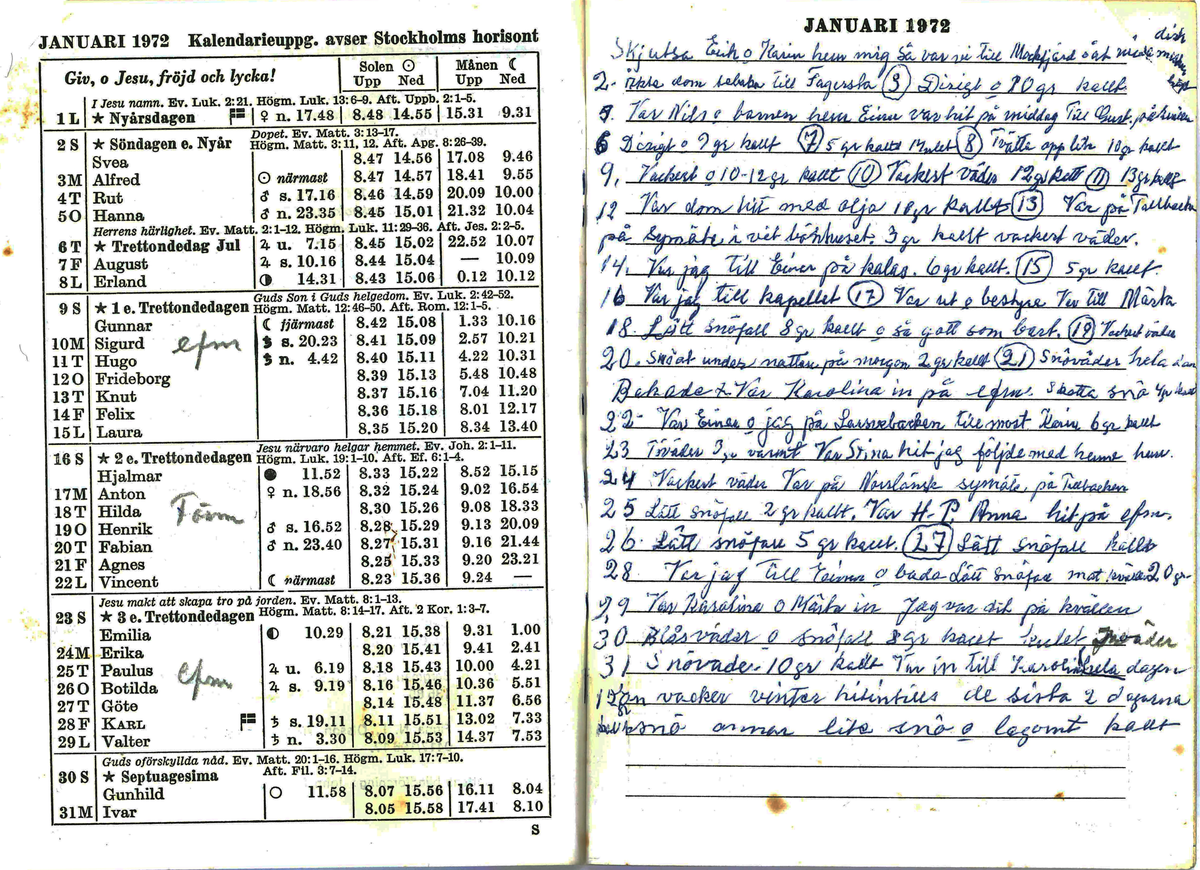 JANUARI 1972 Kalendarieuppg. avser Stockholms horisont
Giv, o Jesu, fröjd och lycka! Solen ☉ Upp Ned Månen ☾ Upp Ned
I Jesu namn. Ev. Luk. 2:21. Högm. Luk. 13:6–9. Aft. Uppb. 2:1–5.
1 L ★ Nyårsdagen ♀ n. 17.48 8.48 14.55 15.31 9.31
Dopet. Ev. Matt. 3:13–17.
2 S ★ Söndagen e. Nyår Högm. Matt. 3:11, 12. Aft. Apg. 8:26–39.
Svea 8.47 14.56 17.08 9.46
3M Alfred ☉ närmast 8.47 14.57 18.41 9.55
4T Rut ♂ s. 17.16 8.46 14.59 20.09 10.00
5O Hanna ♂ n. 23.35 8.45 15.01 21.32 10.04
Herrens härlighet. Ev. Matt. 2:1–12. Högm. Luk. 11:29–36. Aft. Jes. 2:2–5.
6 T ★ Trettondedag Jul ♃ u. 7.15 8.45 15.02 22.52 10.07
7 F August ♃ s. 10.16 8.44 15.04 — 10.09
8 L Erland ◑ 14.31 8.43 15.06 0.12 10.12
Guds Son i Guds helgedom. Ev. Luk. 2:42–52.
9 S ★ 1 e. Trettondedagen Högm. Matt. 12:46–50. Aft. Rom. 12:1–5.
Gunnar ☾ fjärmast 8.42 15.08 1.33 10.16
10M Sigurd efm s. 20.23 8.41 15.09 2.57 10.21
11 T Hugo n. 4.42 8.40 15.11 4.22 10.31
12 O Frideborg 8.39 15.13 5.48 10.48
13 T Knut 8.37 15.16 7.04 11.20
14 F Felix 8.36 15.18 8.01 12.17
15 L Laura 8.35 15.20 8.34 13.40
Jesu närvaro helgar hemmet. Ev. Joh. 2:1–11.
16 S ★ 2 e. Trettondedagen Högm. Luk. 19:1–10. Aft. Ef. 6:1–4.
Hjalmar ● 11.52 8.33 15.22 8.52 15.15
17M Anton ♀ n. 18.56 8.32 15.24 9.02 16.54
18 T Hilda Förm 8.30 15.26 9.08 18.33
19 O Henrik ♂ s. 16.52 8.28 15.29 9.13 20.09
20 T Fabian ♂ n. 23.40 8.27 15.31 9.16 21.44
21 F Agnes 8.25 15.33 9.20 23.21
22 L Vincent ☾ närmast 8.23 15.36 9.24 —
Jesu makt att skapa tro på jorden. Ev. Matt. 8:1–13.
23 S ★ 3 e. Trettondedagen Högm. Matt. 8:14–17. Aft. 2 Kor. 1:3–7.
Emilia ◐ 10.29 8.21 15.38 9.31 1.00
24M Erika 8.20 15.41 9.41 2.41
25 T Paulus efm ♃ u. 6.19 8.18 15.43 10.00 4.21
26 O Botilda ♃ s. 9.19 8.16 15.46 10.36 5.51
27 T Göte 8.14 15.48 11.37 6.56
28 F KARL ♄ s. 19.11 8.11 15.51 13.02 7.33
29 L Valter ♄ n. 3.30 8.09 15.53 14.37 7.53
Guds oförskyllda nåd. Ev. Matt. 20:1–16. Högm. Luk. 17:7–10.
30 S ★ Septuagesima Aft. Fil. 3:7–14.
Gunhild ○ 11.58 8.07 15.56 16.11 8.04
31M Ivar 8.05 15.58 17.41 8.10
S
JANUARI 1972
Skjutsa Erik o Karin hem mig så var vi till Mockfjärd o åt
2- åkta dom tebaka till Fagersta (3) Disigt o 10 gr kallt
5. Var Nils o barnen hem Einar var hit på middag Till Gust. på kvällen
6 Disigt o 7 gr kallt (7) 5 gr kallt mulet (8) Tvätta opp lite 10 gr kallt
9, Vackert o 10-12 gr kallt (10) Vackert väder 12 gr kallt (11) 13 gr kallt
12 Var dom hit med olja 10 gr kallt (13) Var på Tallbacka
på Symöte i vet bönhuset. 3 gr kallt vackert väder.
14. Var jag till Einar på kalas. 6 gr kallt. (15) 5 gr kallt.
16 Var jag till kapellet (17) Var ut o bestyre Var till Märta
18. Lätt snöfall 8 gr kallt o så gott som bart. (19) Vackert väder
20. Snöat under natten, på morgon 2 gr kallt (21) Snöväder hela dan
Bakade Var Karolina in på efm. Skotta snö 4 gr kallt
22- Var Einar o jag på till most Karin 6 gr kallt
23 Töväder 3 gr varmt Var Stina hit jag följde med henne hem.
24 Vackert väder Var på Norslänsk symöte, på Tallbacken
25 Lätt snöfall 2 gr kallt. Var H. P. Anna hit på efm.
26. Lätt snöfall 5 gr kallt. (27) Lätt snöfall kallt
28. Var jag till Einar o bada Lätt snöfall mot kvällen 20 gr-
29 Var Karolina o Märta in Jag var dit på kvällen
30 Blåsväder o snöfall 8 gr kallt mulet
31 Snöväder 10 gr kallt Var in till Karolin hela dagen
en vacker vinter hitintills de sista 2 dagarna
snö annar lite snö o lagomt kallt